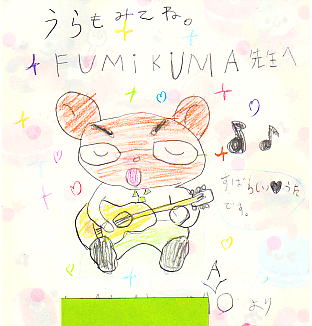 うらもみてね。
FUMiKUMA先生へ
すばらしい♥うた
です。
A
O より